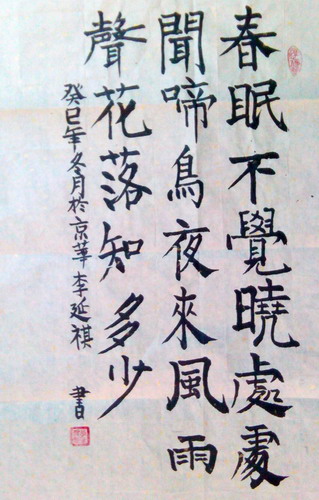 春眠不覺曉處處
聞啼鳥夜來風雨
聲花落知多少
癸巳年冬月於京華李延祺 書